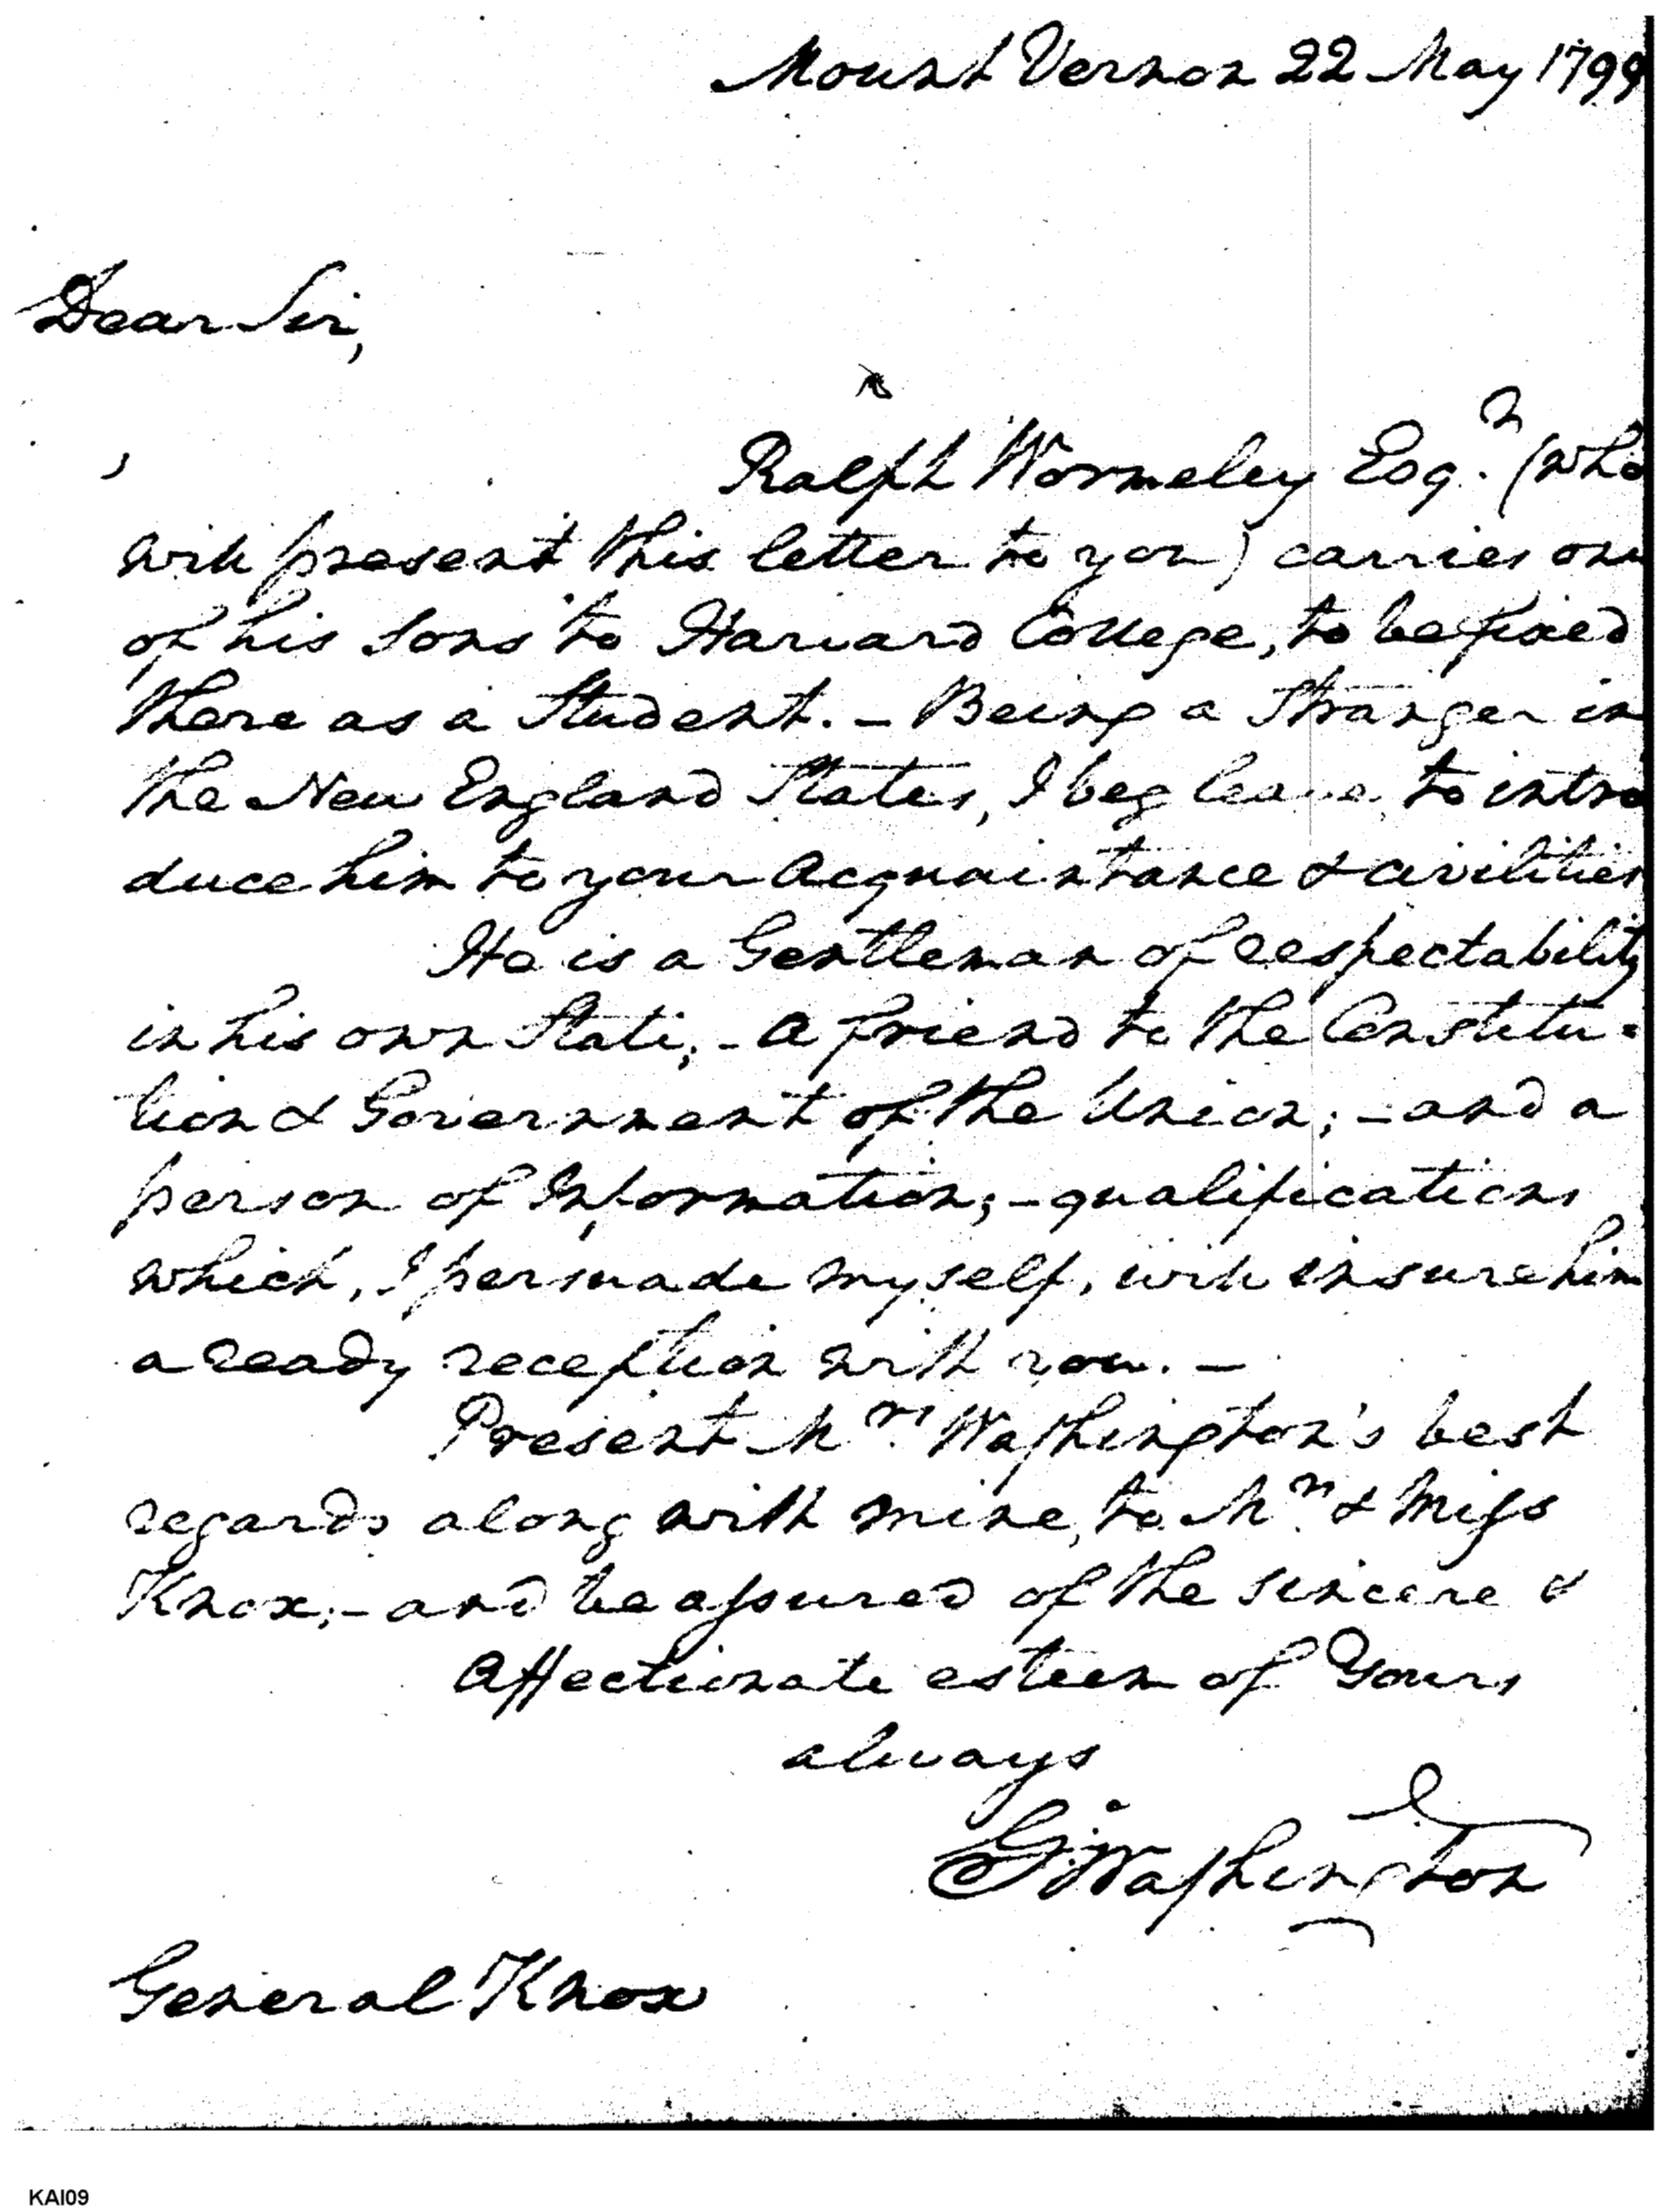 Mount Vernon 22 May 1799
Dear Sir,
Ralph Wormeley Esqr. (who
will present this letter to you) carries one
of his sons to Harvard College, to be fixed
there as a Student. – Being a Stranger in
the New England States, I beg leave to intro
duce him to your acquaintance & civilities
He is a Gentleman of respectability
in his own State; – a friend to the Constitu-
tion & Government of the Union; – and a
person of Information; – qualifications
which, I persuade myself, will insure him
a ready reception with you. –
Present Mrs. Washington's best
regards along with mine, to Mrs. & Miss
Knox; – and be assured of the sincere &
Affectionate esteem of Yours
always
Go: Washington
General Knox
KAI09